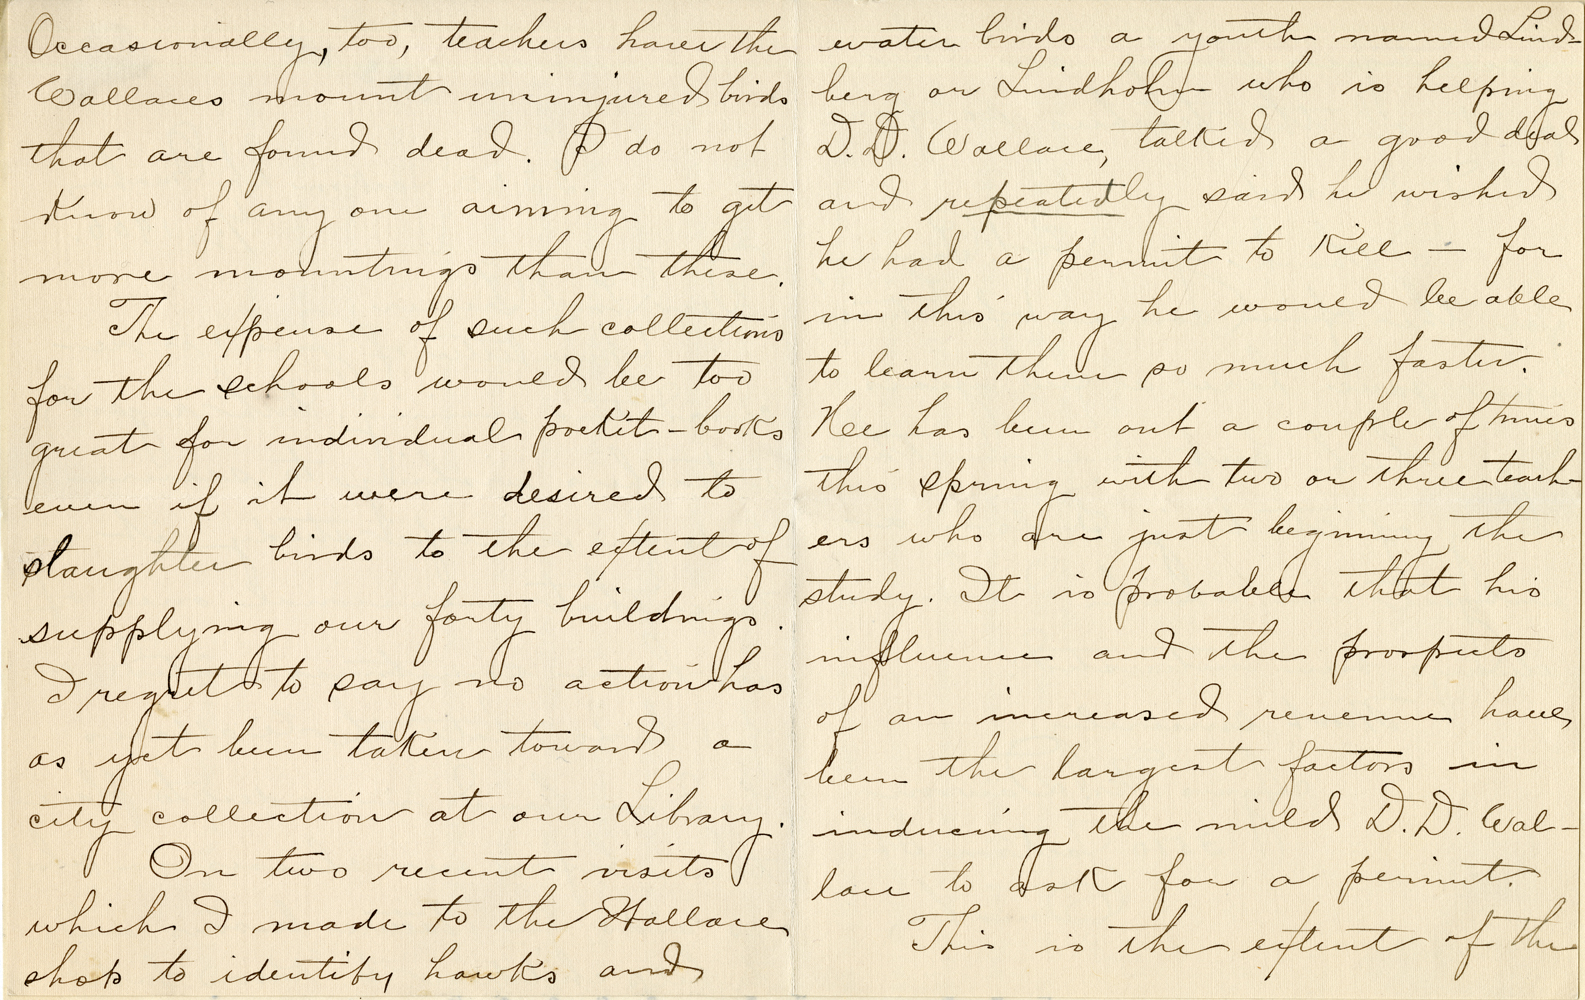 Occasionally, too, teachers have the
Wallaces mount uninjured birds
that are found dead. I do not
know of any one aiming to get
more mountings than these.
The expense of such collections
for the schools would be too
great for individual pocket-books
even if it were desired to
slaughter birds to the extent of
supplying our forty buildings.
I regret to say no action has
as yet been taken toward a
city collection at our Library.
On two recent visits
which I made to the Wallace
shop to identify hawks and
water birds a youth named Lind-
berg or Lindholm who is helping
D.D. Wallace, talked a good deal
and repeatedly said he wished
he had a permit to kill — for
in this way he would be able
to learn them so much faster.
He has been out a couple of times
this spring with two or three teach-
ers who are just beginning the
study. It is probable that his
influence and the prospects
of an increased revenue have
been the largest factors in
inducing the mild D.D. Wal-
lace to ask for a permit.
This is the extent of the